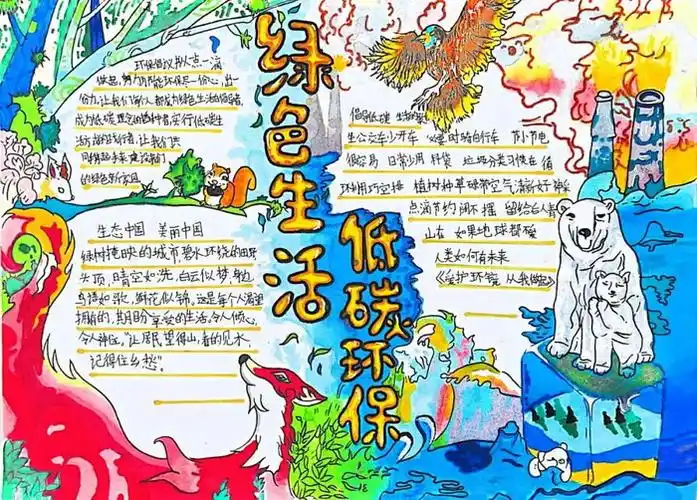 绿色生活
低碳环保
环保倡议 从一点一滴
做起,努力为节能环保尽一份心,出一
份力,让我们每个人都成为绿色生活的倡导者,
成为低碳理念的播种者,实行低碳生
活方式的践行者,让我们共
同携起手来建设我们
的绿色新家园
生态中国 美丽中国
绿树掩映的城市碧水环绕的田野
头顶,晴空如洗,白云似梦,身边,
鸟语如歌,鲜花似锦。这是每个人渴望
拥有的,期盼享受的生活,令人倾心,
令人神往。"让居民望得山,看的见水,
记得住乡愁"。
倡导低碳 生活
坐公交车少开车 必要时骑自行车 节水节电
很容易 日常少用 杯袋 垃圾分类习惯在 循
环利用巧安排 植树种草碳带空气清新好
点滴节约 留给后人青
山在 如果地球都破
人类如何有未来
《爱护环境 从我做起》